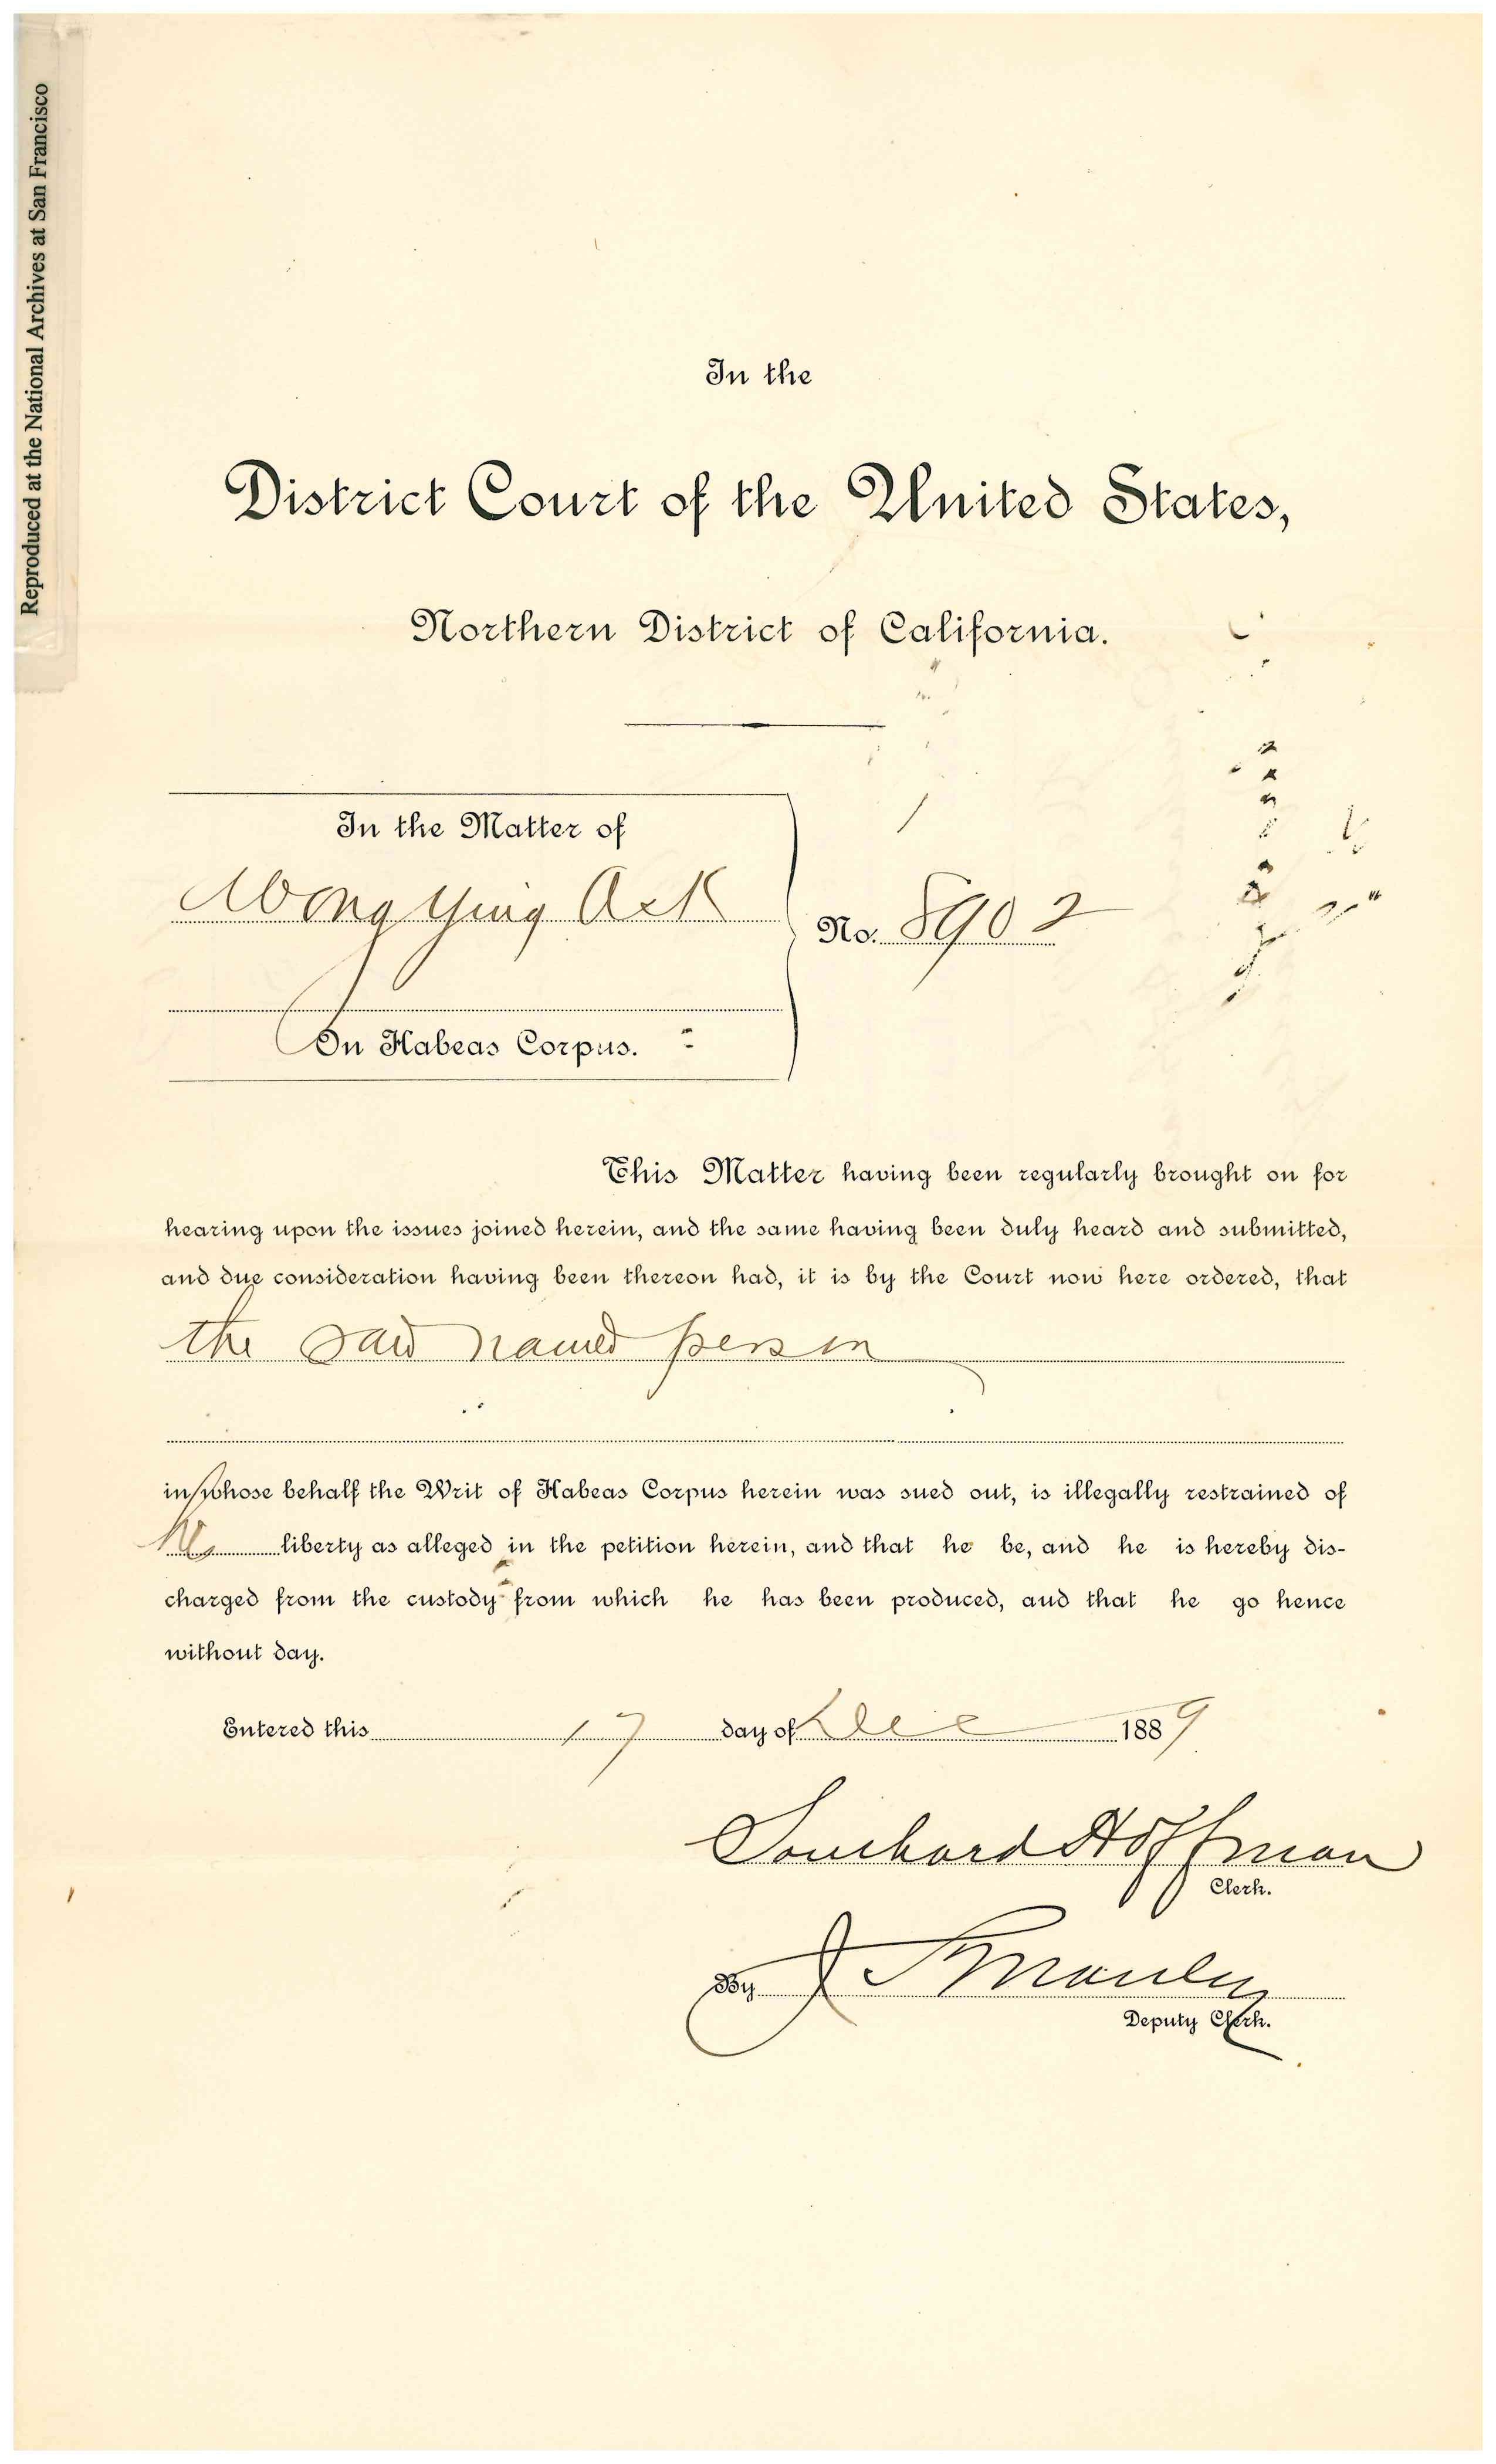 Reproduced at the National Archives at San Francisco
In the
District Court of the United States,
Northern District of California.
In the Matter of
Wong Ying Ack
No. 8902
On Habeas Corpus.
This Matter having been regularly brought on for
hearing upon the issues joined herein, and the same having been duly heard and submitted,
and due consideration having been thereon had, it is by the Court now here ordered, that
the said named person
in whose behalf the Writ of Habeas Corpus herein was sued out, is illegally restrained of
his liberty as alleged in the petition herein, and that he be, and he is hereby dis-
charged from the custody from which he has been produced, and that he go hence
without day.
Entered this 17 day of Dec 1889
Southard Hoffman
Clerk.
By J S Manley
Deputy Clerk.